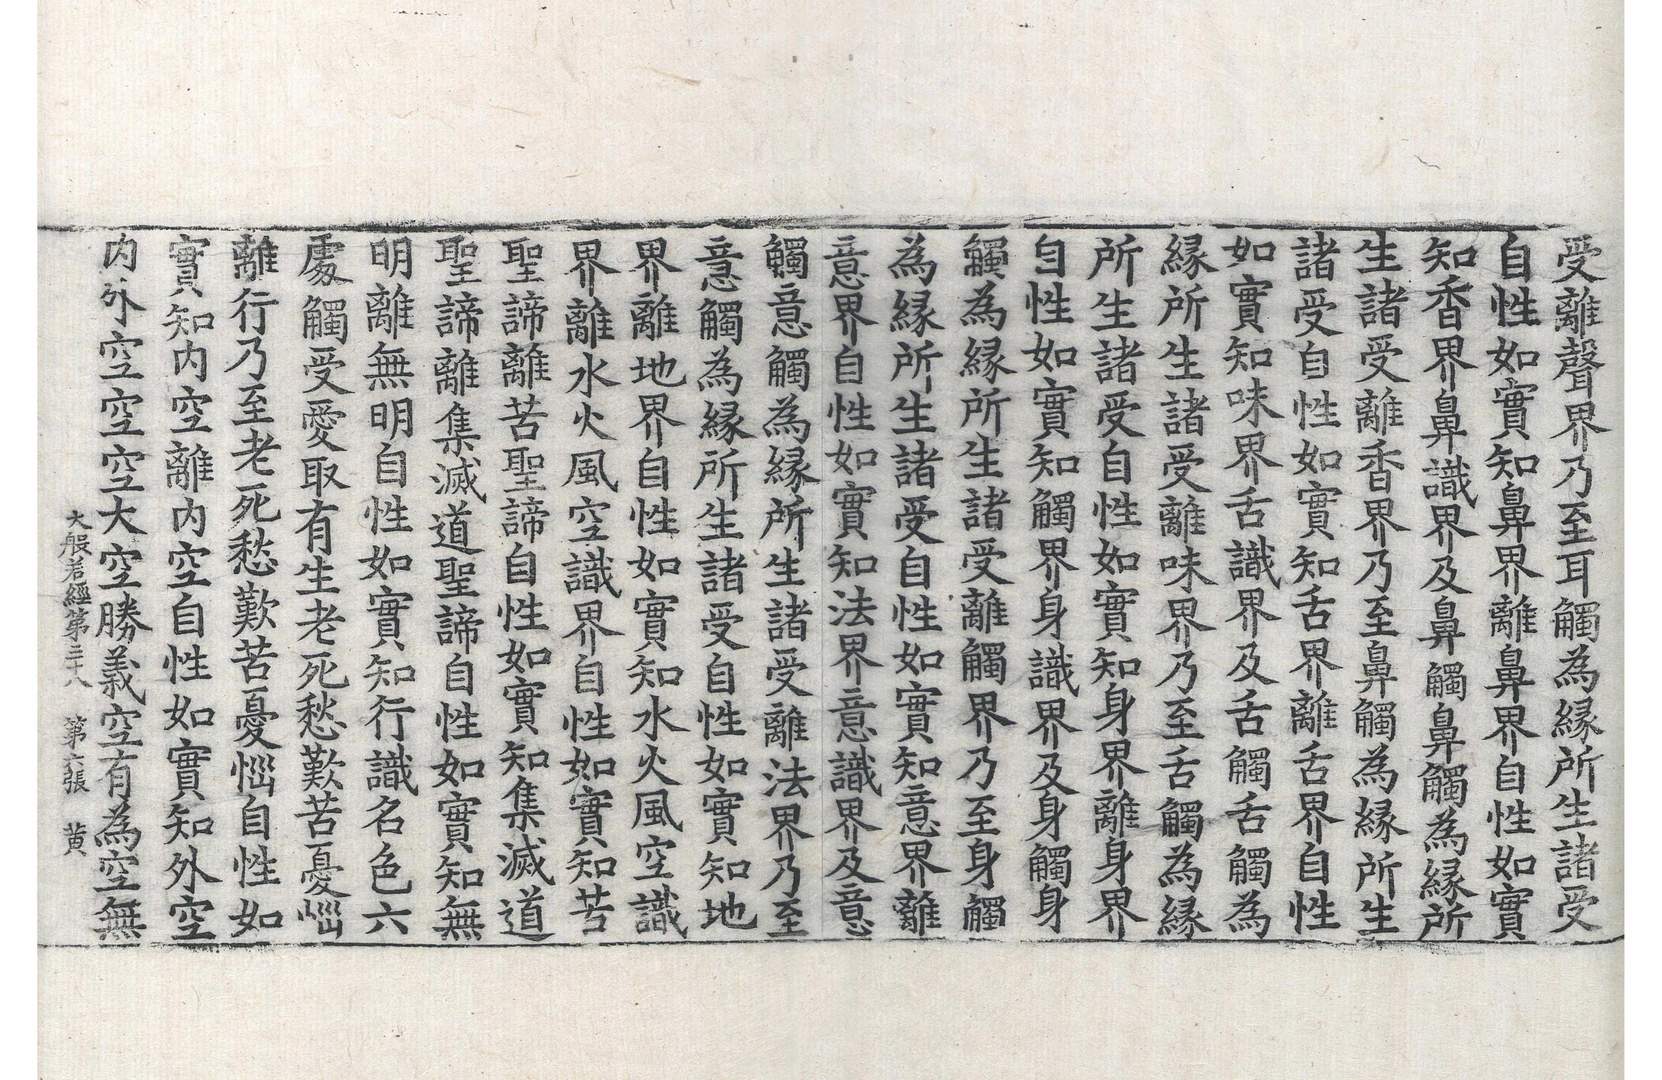 受離聲界乃至耳觸為縁所生諸受
自性如實知鼻界離鼻界自性如實
知香界鼻識界及鼻觸鼻觸為縁所
生諸受離香界乃至鼻觸為縁所生
諸受自性如實知舌界離舌界自性
如實知味界舌識界及舌觸舌觸為
縁所生諸受離味界乃至舌觸為縁
所生諸受自性如實知身界離身界
自性如實知觸界身識界及身觸身
觸為縁所生諸受離觸界乃至身觸
為縁所生諸受自性如實知意界離
意界自性如實知法界意識界及意
觸意觸為縁所生諸受離法界乃至
意觸為縁所生諸受自性如實知地
界離地界自性如實知水火風空識
界離水火風空識界自性如實知苦
聖諦離苦聖諦自性如實知集滅道
聖諦離集滅道聖諦自性如實知無
明離無明自性如實知行識名色六
處觸受愛取有生老死愁歎苦憂惱
離行乃至老死愁歎苦憂惱自性如
實知內空離內空自性如實知外空
內外空空空大空勝義空有為空無
大般若經第三十八 第六張 黄